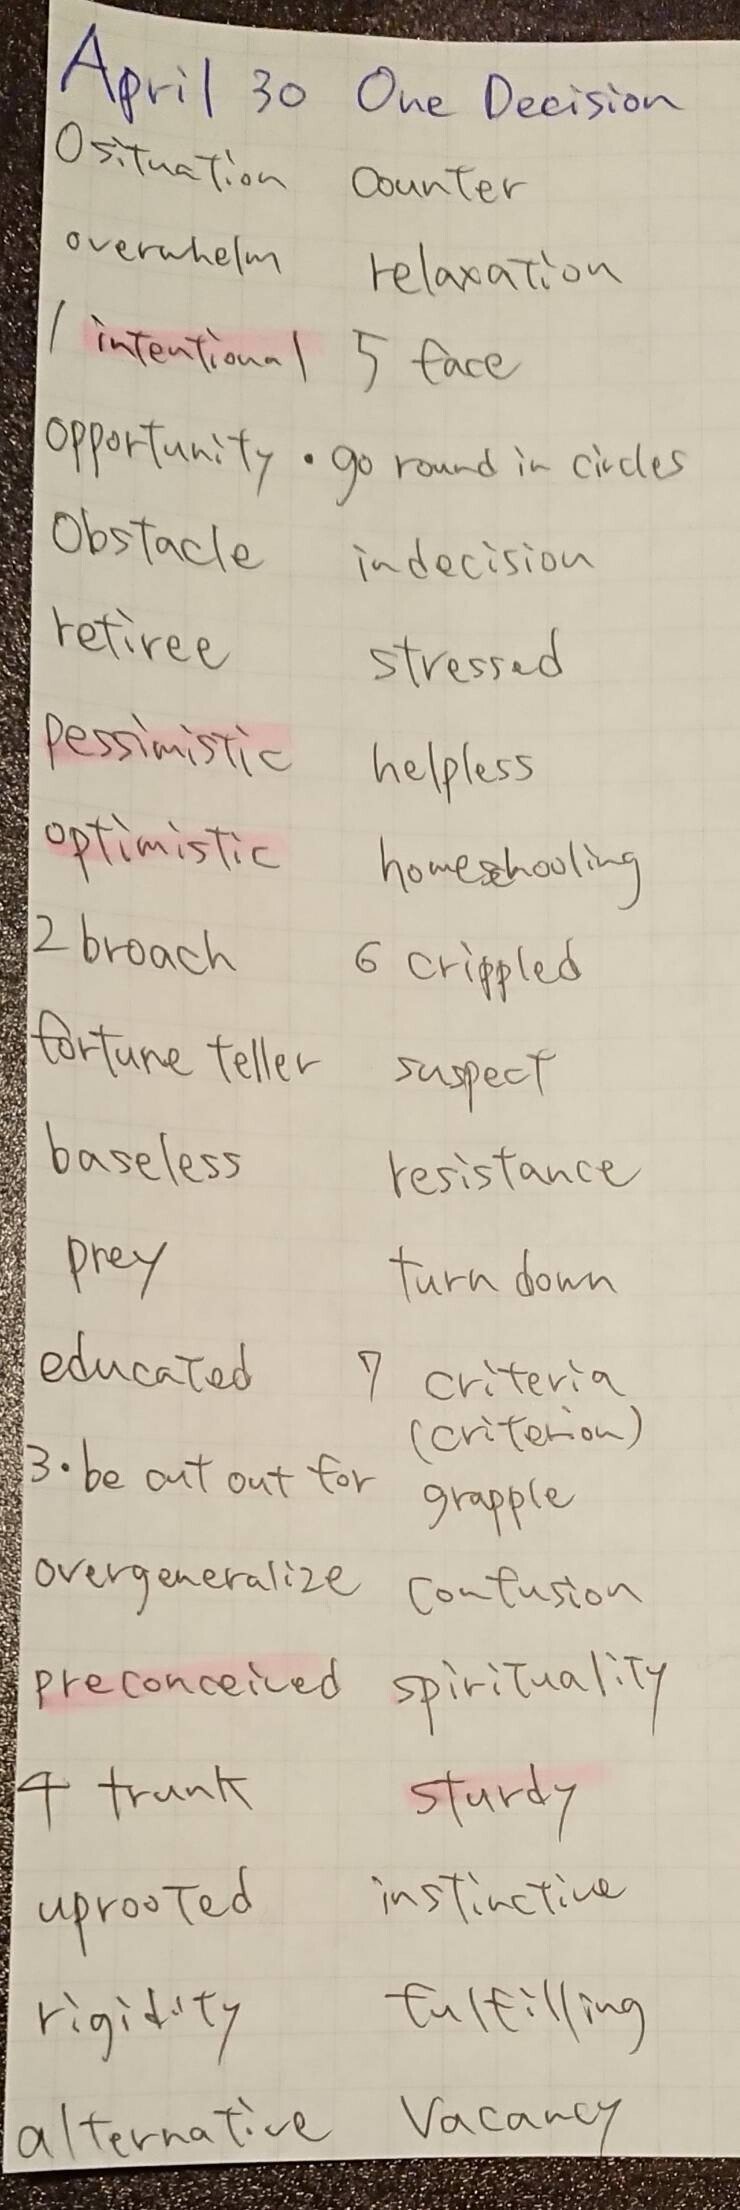 April 30 One Decision
0 situation
overwhelm
1 intentional
opportunity
obstacle
retiree
pessimistic
optimistic
2 broach
fortune teller
baseless
prey
educated
3・be cut out for
overgeneralize
preconceived
4 trunk
uprooted
rigidity
alternative
counter
relaxation
5 face
・go round in circles
indecision
stressed
helpless
homeschooling
6 crippled
suspect
resistance
turn down
7 criteria
(criterion)
grapple
confusion
spirituality
sturdy
instinctive
fulfilling
vacancy